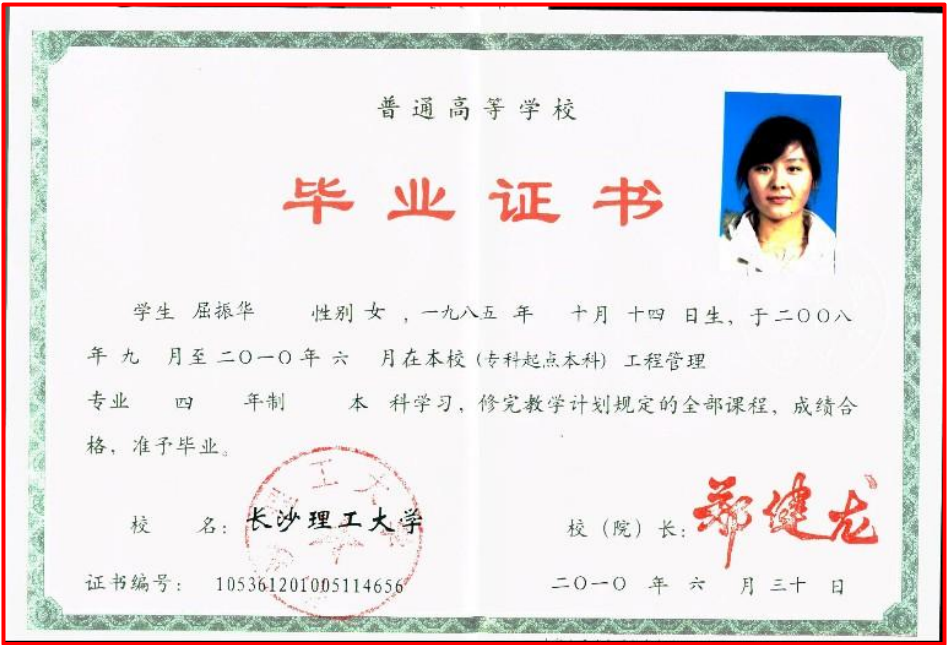 普通高等学校
毕业证书
学生 屈振华 性别 女 ，一九八五 年 十月 十四 日生，于二〇〇八
年 九 月至 二〇一〇 年 六 月在本校 (专科起点本科) 工程管理
专业 四 年制 本 科学习，修完教学计划规定的全部课程，成绩合
格，准予毕业。
校 名：长沙理工大学
校（院）长：郑健龙
证书编号： 105361201005114656
二〇一〇 年 六 月 三十 日